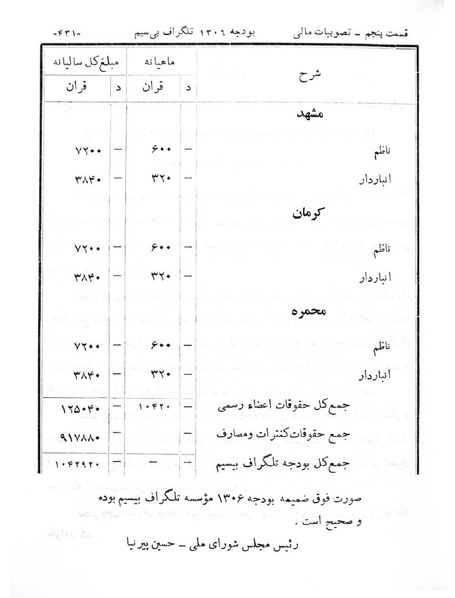 قسمت پنجم ــ تصویبات مالی بودجه ۱۳۰۶ تلگراف بی‌سیم -۴۳۱-
شرح ماهیانه مبلغ کل سالیانه
د قران د قران
مشهد
ناظم – ۶۰۰ – ۷۲۰۰
انباردار – ۳۲۰ – ۳۸۴۰
کرمان
ناظم – ۶۰۰ – ۷۲۰۰
انباردار – ۳۲۰ – ۳۸۴۰
محمره
ناظم – ۶۰۰ – ۷۲۰۰
انباردار – ۳۲۰ – ۳۸۴۰
جمع کل حقوقات اعضاء رسمی – ۱۰۴۲۰ – ۱۲۵۰۴۰
جمع حقوقات کنترات ومصارف – ۹۱۷۸۸۰
جمع کل بودجه تلگراف بیسیم – – – ۱۰۴۲۹۲۰
صورت فوق ضمیمه بودجه ۱۳۰۶ مؤسسه تلگراف بیسیم بوده
و صحیح است .
رئیس مجلس شورای ملی ــ حسین پیرنیا